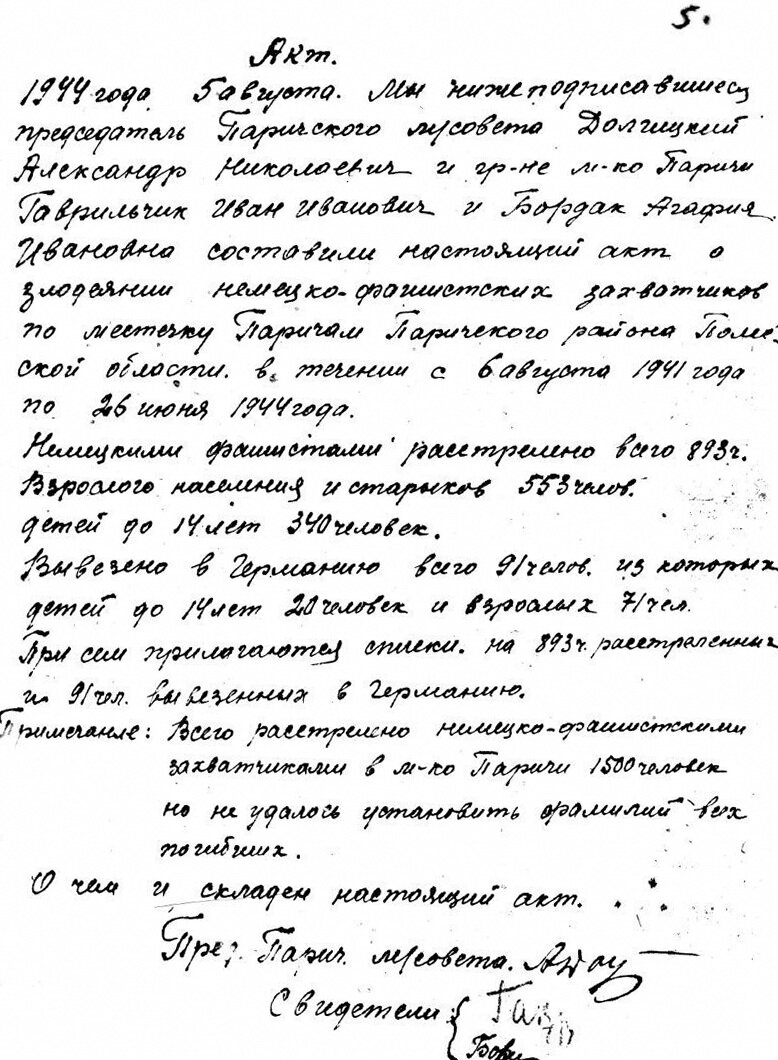 5.
Акт.
1944 года 5 августа. Мы нижеподписавшиеся
председатель Паричского м/совета Долгицкий
Александр Николаевич и гр-не м-ко Паричи
Гаврильчик Иван Иванович и Бордак Агафия
Ивановна составили настоящий акт о
злодеянии немецко-фашистских захватчиков
по местечку Паричам Паричского района Полес-
ской области. в течении с 6 августа 1941 года
по 26 июня 1944 года.
Немецкими фашистами расстрелено всего 893 ч.
Взрослого населения и стариков 553 челов.
детей до 14 лет 340 человек.
Вывезено в Германию всего 91 челов. из которых
детей до 14 лет 20 человек и взрослых 71 чел.
При сем прилагаются списки. на 893 ч. расстреленных
и 91 чел. вывезенных в Германию.
Примечание: Всего расстрелено немецко-фашистскими
захватчиками в м-ко Паричи 1500 человек
но не удалось установить фамилий всех
погибших.
О чем и складен настоящий акт.
Пред. Парич. м/совета.
Свидетели: